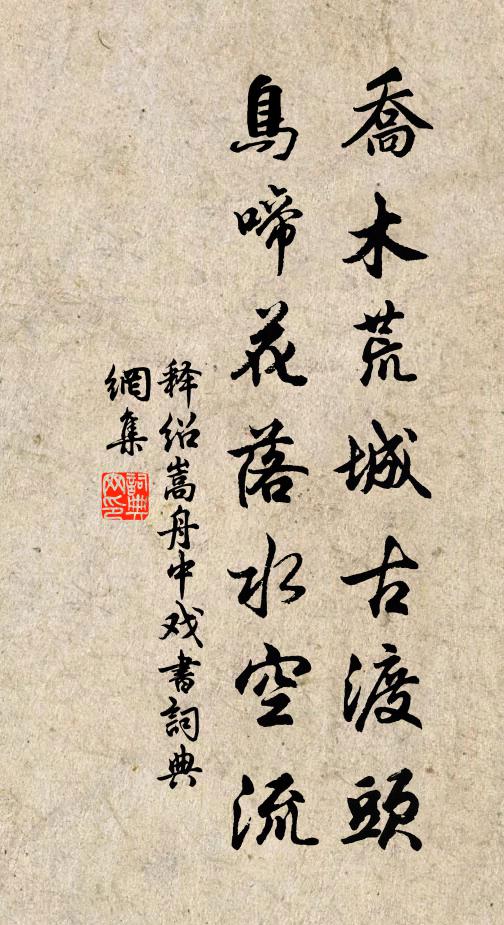 喬木荒城古渡頭
鳥啼花落水空流
释绍嵩舟中戏書詞典
網集
詞典
网印